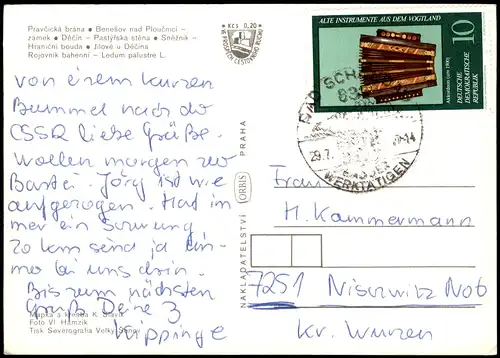 Pravčická brána • Benešov nad Ploučnicí -
zámek • Děčín - Pastýřská stěna • Sněžník -
Hraniční bouda • Jílové u Děčína
Rojovník bahenní - Ledum palustre L.
Kčs 0,20
von einem kurzen
Bummel nach der
CSSR liebe Grüße.
wollen morgen zur
Bastei. Jörg ist wie
aufgezogen. Hat im-
mer ein Schwung
20 km sind ja im-
mer bei uns drin.
Bis zum nächsten
Gruß Deine 3
Kippinge
Mapka a kresba K.
Foto Vl. Hamzík
Tisk Severografia Velký Šenov
NAKLADATELSTVÍ ORBIS PRAHA
ALTE INSTRUMENTE AUS DEM VOGTLAND
Akkordeon (um 1900)
DEUTSCHE
DEMOKRATISCHE
REPUBLIK
10
BAD SCHANDAU
29.7.
WERKTÄTIGEN
Frau
H. Kammermann
7251 Nischwitz Nob
Kr. Wurzen